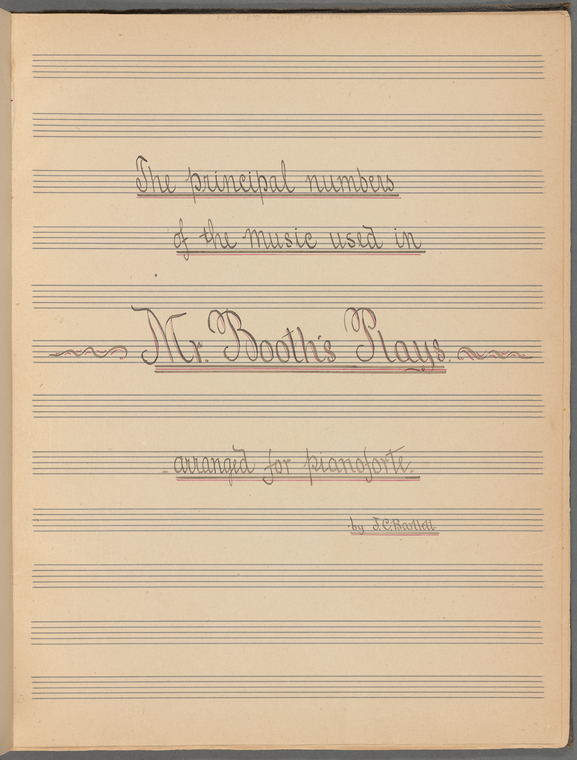 The principal numbers
of the music used in
Mr. Booth's Plays.
arranged for pianoforte.
by J.C. Bartlett